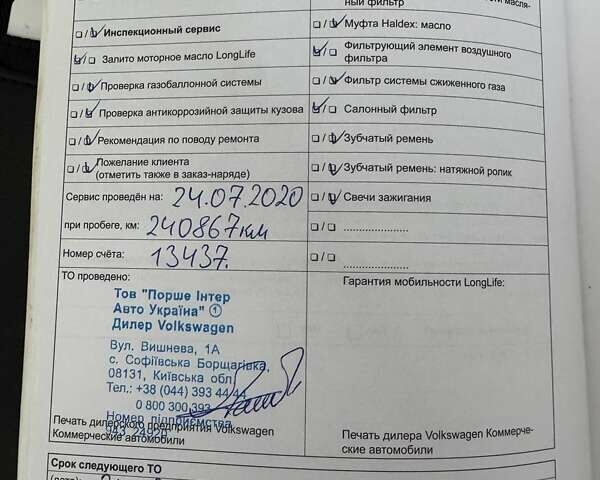 ный фильтр
☐ / ☐ Инспекционный сервис
☐ / ☐ Муфта Haldex: масло
☐ / ☐ Залито моторное масло LongLife
☐ / ☐ Фильтрующий элемент воздушного
фильтра
☐ / ☐ Проверка газобаллонной системы
☐ / ☐ Фильтр системы сжиженного газа
☐ / ☐ Проверка антикоррозийной защиты кузова
☐ / ☐ Салонный фильтр
☐ / ☐ Рекомендация по поводу ремонта
☐ / ☐ Зубчатый ремень
☐ / ☐ Пожелание клиента
(отметить также в заказ-наряде)
☐ / ☐ Зубчатый ремень: натяжной ролик
Сервис проведён на: 24.07.2020
☐ / ☐ Свечи зажигания
при пробеге, км: 240867км
☐ / ☐ ....................
Номер счёта: 13437.
☐ / ☐ ....................
ТО проведено:
Гарантия мобильности LongLife:
Тов "Порше Інтер
Авто Україна" ①
Дилер Volkswagen
Вул. Вишнева, 1А
с. Софіївська Борщагівка,
08131, Київська обл.
Тел.: +38 (044) 393 44 44
0 800 300 393
Номер підприємства
943 24920
Печать дилерского предприятия Volkswagen
Коммерческие автомобили
Печать дилера Volkswagen Коммерче-
ские автомобили
Срок следующего ТО